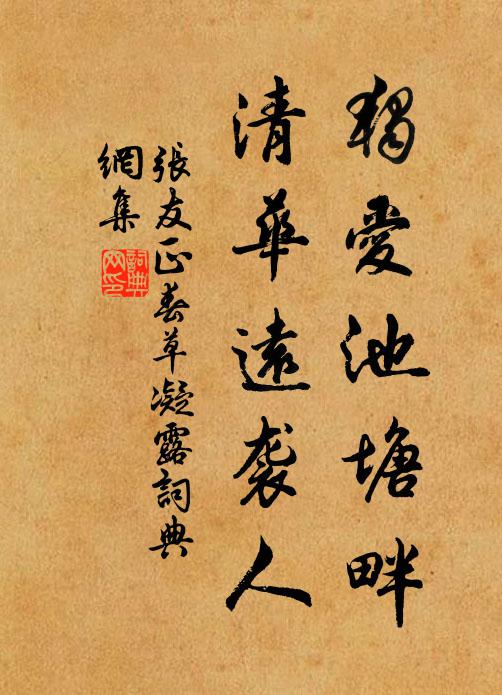 獨愛池塘畔
清華遠袭人
張友正春草凝露詞典
網集
詞典
网印